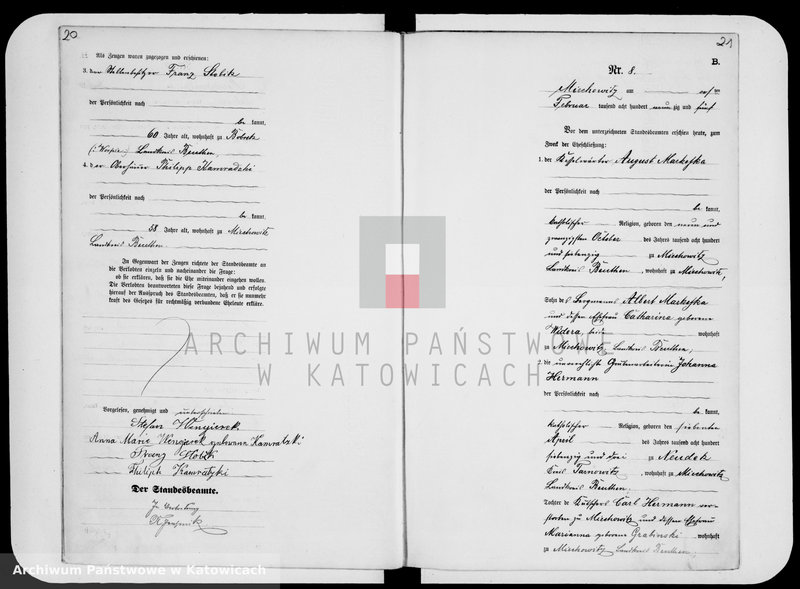 20
Als Zeugen waren zugezogen und erschienen:
3. der Stellenbesitzer Franz Slotik
der Persönlichkeit nach
be kannt,
60 Jahre alt, wohnhaft zu Bobrek
Landkreis Beuthen,
4. der Oberhäuer Philipp Kamradzki
der Persönlichkeit nach
be kannt,
58 Jahre alt, wohnhaft zu Miechowitz
Landkreis Beuthen.
In Gegenwart der Zeugen richtete der Standesbeamte an
die Verlobten einzeln und nacheinander die Frage:
ob sie erklären, daß sie die Ehe miteinander eingehen wollen.
Die Verlobten beantworteten diese Frage bejahend und erfolgte
hierauf der Ausspruch des Standesbeamten, daß er sie nunmehr
kraft des Gesetzes für rechtmäßig verbundene Eheleute erkläre.
Vorgelesen, genehmigt und unterschrieben
Stefan Wengierek
Anna Marie Wengierek geborene Kamratzki
Franz
Philiph Kamratzki
Der Standesbeamte.
In Vertretung
21
B.
Nr. 8.
Miechowitz am
Februar tausend acht hundert neun zig und fünf
Vor dem unterzeichneten Standesbeamten erschien heute, zum
Zweck der Eheschließung:
1. der Kesselwärter August Markefka
der Persönlichkeit nach
be kannt,
katholischer Religion, geboren den neun und
zwanzigsten October des Jahres tausend acht hundert
und siebenzig zu Miechowitz
Landkreis Beuthen, wohnhaft zu Miechowitz,
Sohn des Bergmanns Albert Markefka
und dessen Ehefrau Catharina geborene
Widera, beide wohnhaft
zu Miechowitz, Landkreis Beuthen,
2. die unverehelichte Grubenarbeiterin Johanna
Hermann
der Persönlichkeit nach
be kannt,
katholischer Religion, geboren den siebenten
April des Jahres tausend acht hundert
siebenzig und drei zu Neudeck
Kreis Tarnowitz, wohnhaft zu Miechowitz
Landkreis Beuthen.
Tochter des Kutschers Carl Hermann ver-
storben zu Miechowitz und dessen Ehefrau
Marianna geborene Grabinski wohnhaft
zu Miechowitz Landkreis Beuthen.
ARCHIWUM PAŃSTWOWE
W KATOWICACH
Archiwum Państwowe w Katowicach